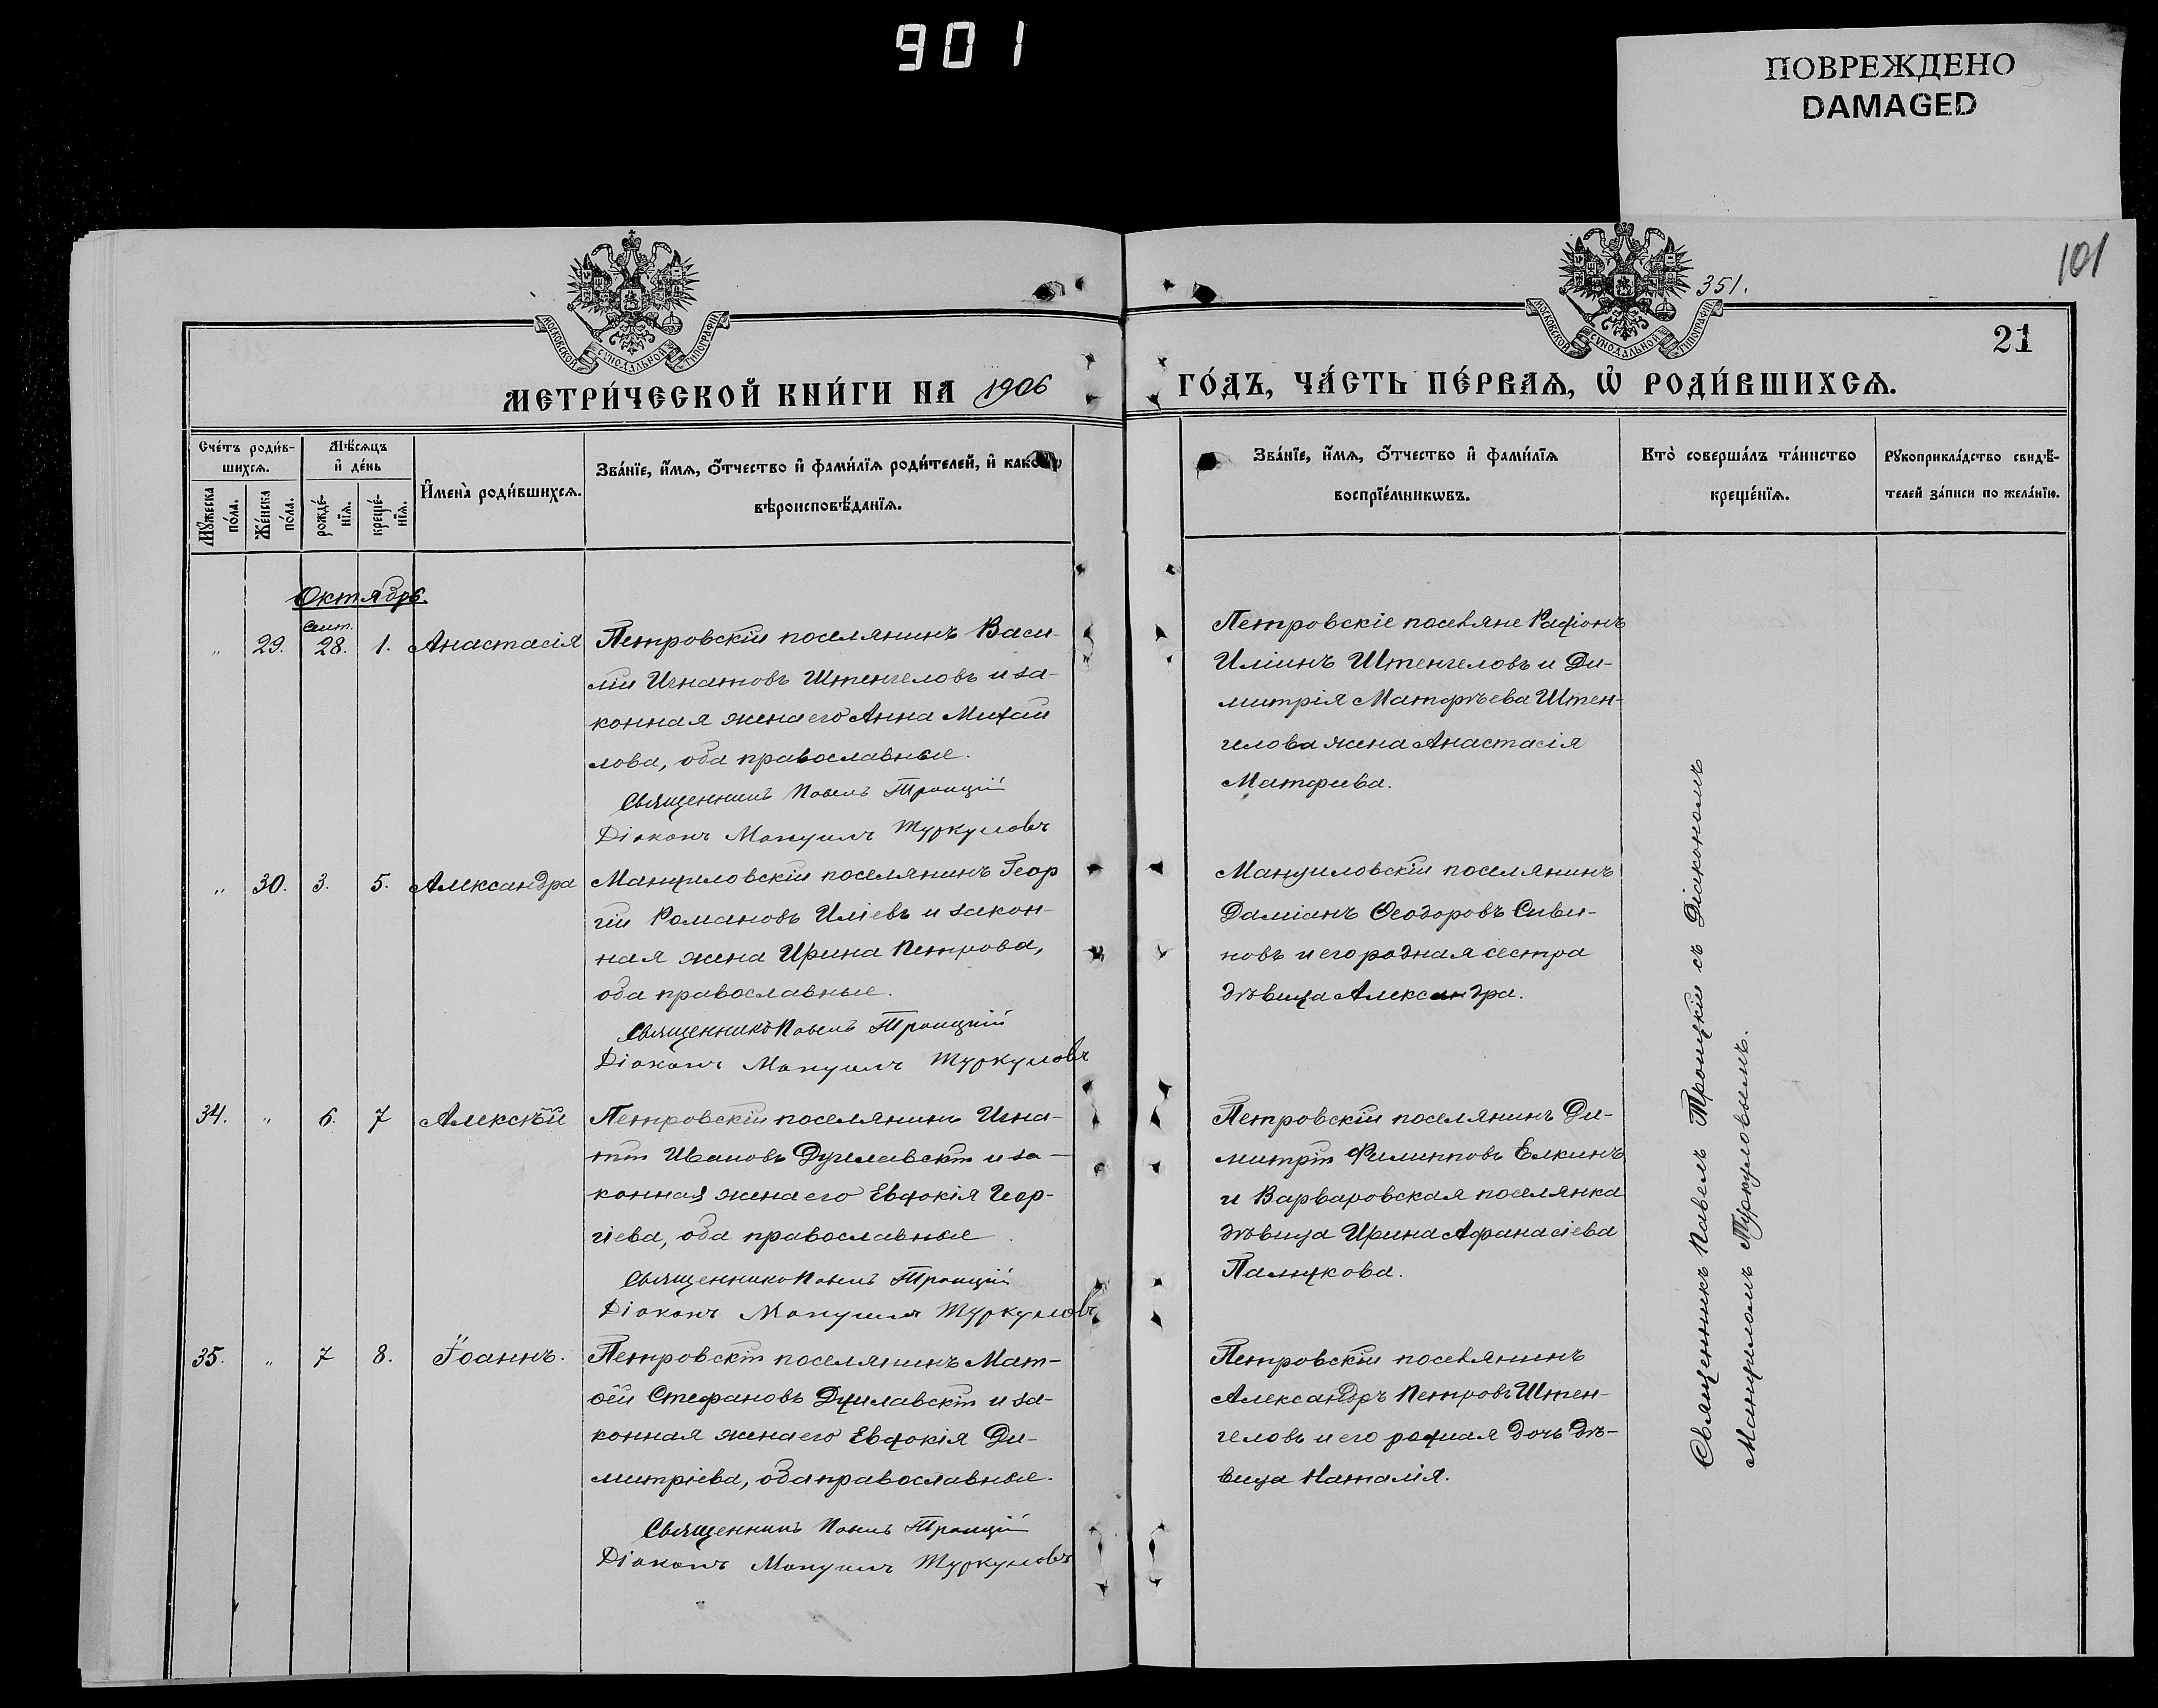 901
ПОВРЕЖДЕНО
DAMAGED
101
351.
21
МОСКОВСКОЙ СѴНОДАЛЬНОЙ ТИПОГРАФІИ
МОСКОВСКОЙ СѴНОДАЛЬНОЙ ТИПОГРАФІИ
МЕТРИ́ЧЕСКОЙ КНИ́ГИ НА 1906
ГО́ДЪ, ЧА́СТЬ ПЕ́РВАѦ, Ѡ҆ РОДИ́ВШИХСѦ.
Сче́тъ роди́в-
шихсѧ.
Мꙋ́жеска
по́ла.
Же́нска
по́ла.
Мѣ́сѧцъ
и҆ де́нь
рожде́-
нїѧ.
креще́-
нїѧ.
И҆мена̀ роди́вшихсѧ.
Зва́нїе, и҆́мѧ, ѻ҆́тчество и҆ фами́лїѧ роди́телей, и҆ како́гѡ
вѣроисповѣ́данїѧ.
Зва́нїе, и҆́мѧ, ѻ҆́тчество и҆ фами́лїѧ
воспрїе́мникѡвъ.
Кто̀ соверша́лъ та́инство
креще́нїѧ.
Рꙋкоприкла́дство свидѣ́-
телей за́писи по жела́нїю.
Октябрь.
Сент.
„ 29. 28. 1. Анастасія
Петровскій поселянинъ Васи-
лій Игнатовъ Штенгеловъ и за-
конная жена его Анна Михаи
лова, оба православные.
Священникъ Павелъ Троицкій
Діаконъ Мануилъ Туркуловъ
Петровскіе поселяне Родіонъ
Иліинъ Штенгеловъ и Ди-
митрія Матѳѣева Штен-
гелова жена Анастасія
Матфиева.
„ 30. 3. 5. Александра
Мануиловскій поселянинъ Геор
гій Романовъ Иліевъ и закон-
ная жена Ирина Петрова,
оба православные.
Священникъ Павелъ Троицкій
Діаконъ Мануилъ Туркуловъ
Мануиловскій поселянинъ
Даміанъ Ѳеодоровъ Сиви-
новъ и его родная сестра
дѣвица Александра.
34. „ 6. 7 Алексѣй
Петровскій поселянинъ Игна-
тій Ивановъ Дуплавскій и за-
конная жена его Евдокія Геор-
гіева, оба православные
Священникъ Павелъ Троицкій
Діаконъ Мануилъ Туркуловъ
Петровскій поселянинъ Ди-
митрій Филипповъ Елкинъ
и Варваровская поселянка
дѣвица Ирина Афанасіева
Палчкова.
35. „ 7 8. Іоаннъ.
Петровскій поселянинъ Мат-
ѳей Стефановъ Дуплавскій и за-
конная жена его Евдокія Ди-
митріева, оба православные.
Священникъ Павелъ Троицкій
Діаконъ Мануилъ Туркуловъ
Петровскій поселянинъ
Александръ Петровъ Штен-
геловъ и его родная дочь дѣ-
вица Наталія.
Священникъ Павелъ Троицкій съ Діакономъ
Мануиломъ Туркуловымъ.